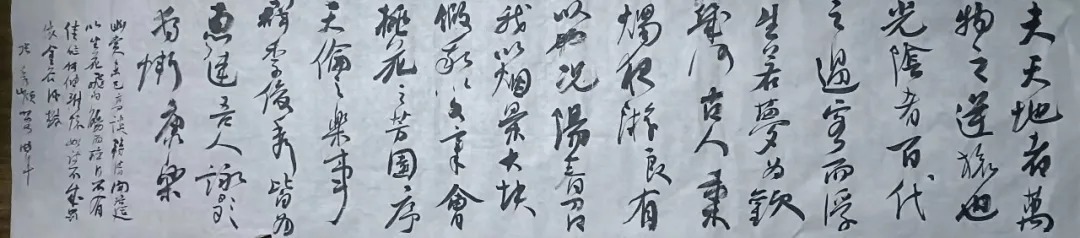 夫天地者萬
物之逆旅也
光陰者百代
之過客而浮
生若夢为歡
幾何古人秉
燭夜游良有
以也况陽春召
我以烟景大块
假我以文章會
桃花之芳園序
天倫之樂事
群季俊秀皆为
惠連吾人詠歌
獨慚康樂
幽賞未已高談轉清開瓊筵
以坐花飛羽觴而醉月不有
佳作何伸雅懷如詩不成罰
依金谷酒數